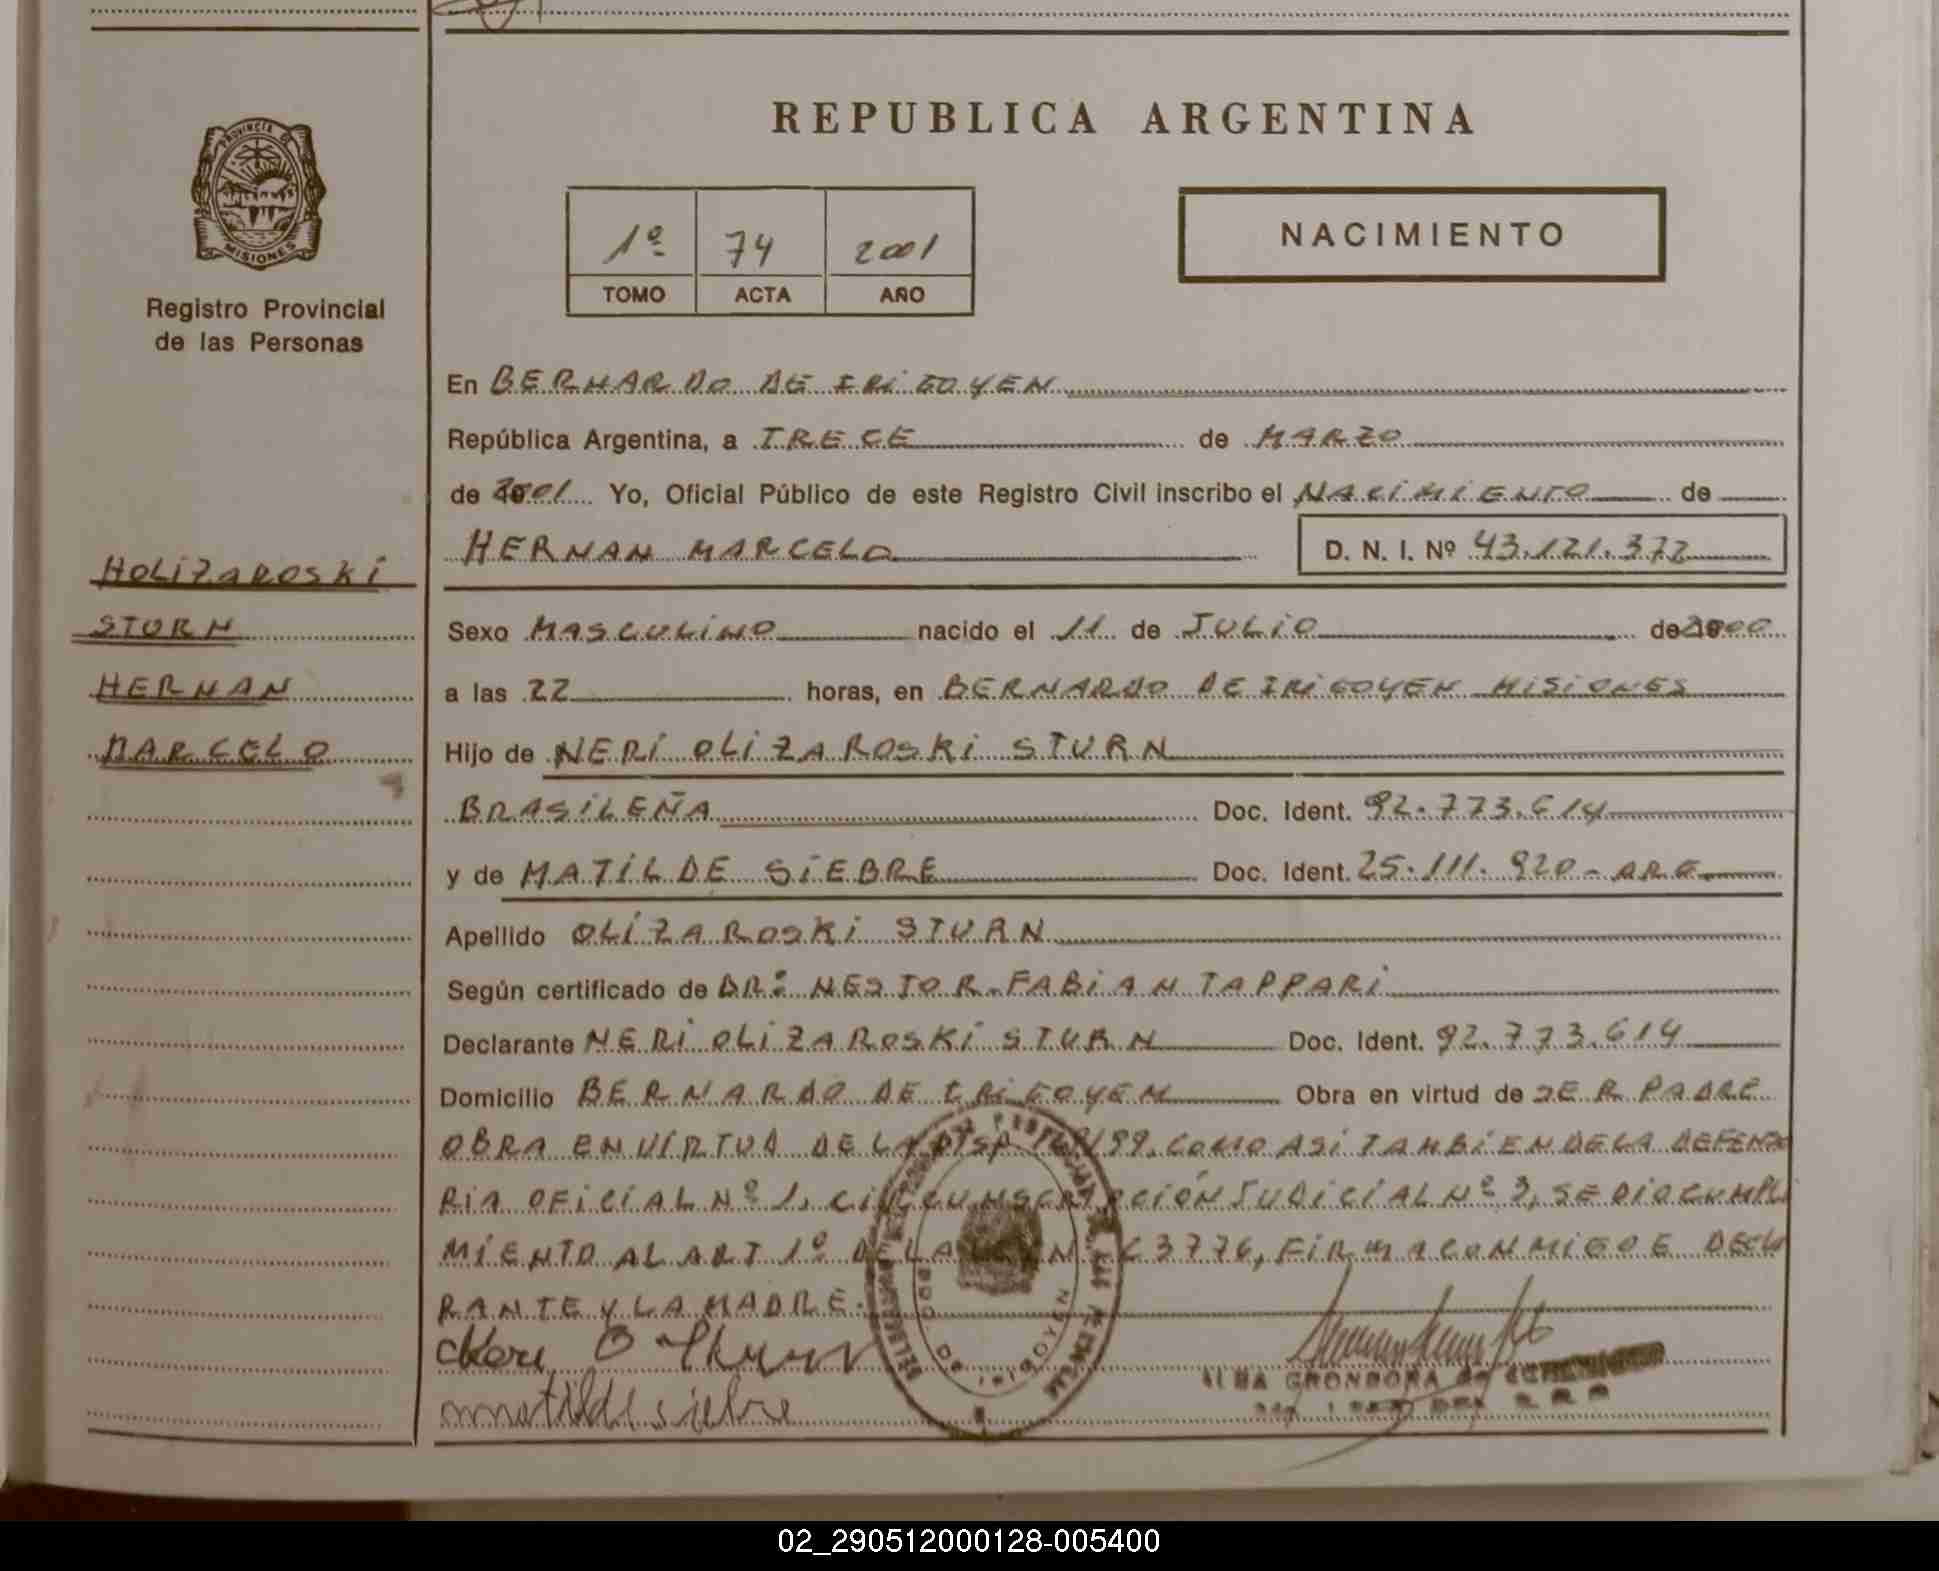 PROVINCIA DE
MISIONES
Registro Provincial
de las Personas
HOLIZAROSKI
STURN
HERNAN
MARCELO
REPUBLICA ARGENTINA
1º 74 2001
TOMO ACTA AÑO
NACIMIENTO
En BERNARDO DE IRIGOYEN
República Argentina, a TRECE de MARZO
de 2001 Yo, Oficial Público de este Registro Civil inscribo el NACIMIENTO de
HERNAN MARCELO D. N. I. Nº 43.121.372
Sexo MASCULINO nacido el 11 de JULIO de 2000
a las 22 horas, en BERNARDO DE IRIGOYEN MISIONES
Hijo de NERI OLIZAROSKI STURN
BRASILEÑA Doc. Ident. 92.773.614
y de MATILDE SIEBRE Doc. Ident. 25.111.920 - ARG
Apellido OLIZAROSKI STURN
Según certificado de DR: NESTOR FABIAN TAPPARI
Declarante NERI OLIZAROSKI STURN Doc. Ident. 92.773.614
Domicilio BERNARDO DE IRIGOYEN Obra en virtud de SER PADRE
OBRA EN VIRTUD DE LA DISP /99. COMO ASI TAMBIEN DE LA DEFENSO
RIA OFICIAL Nº 1, CIRCUNSCRIPCIÓN JUDICIAL Nº 3, SE DIO CUMPLI
MIENTO AL ART 1º DE LA 3776, FIRMA CONMIGO E DECLA
RANTE Y LA MADRE.
matilde siebre
ALBA GRONDONA de
02_290512000128-005400